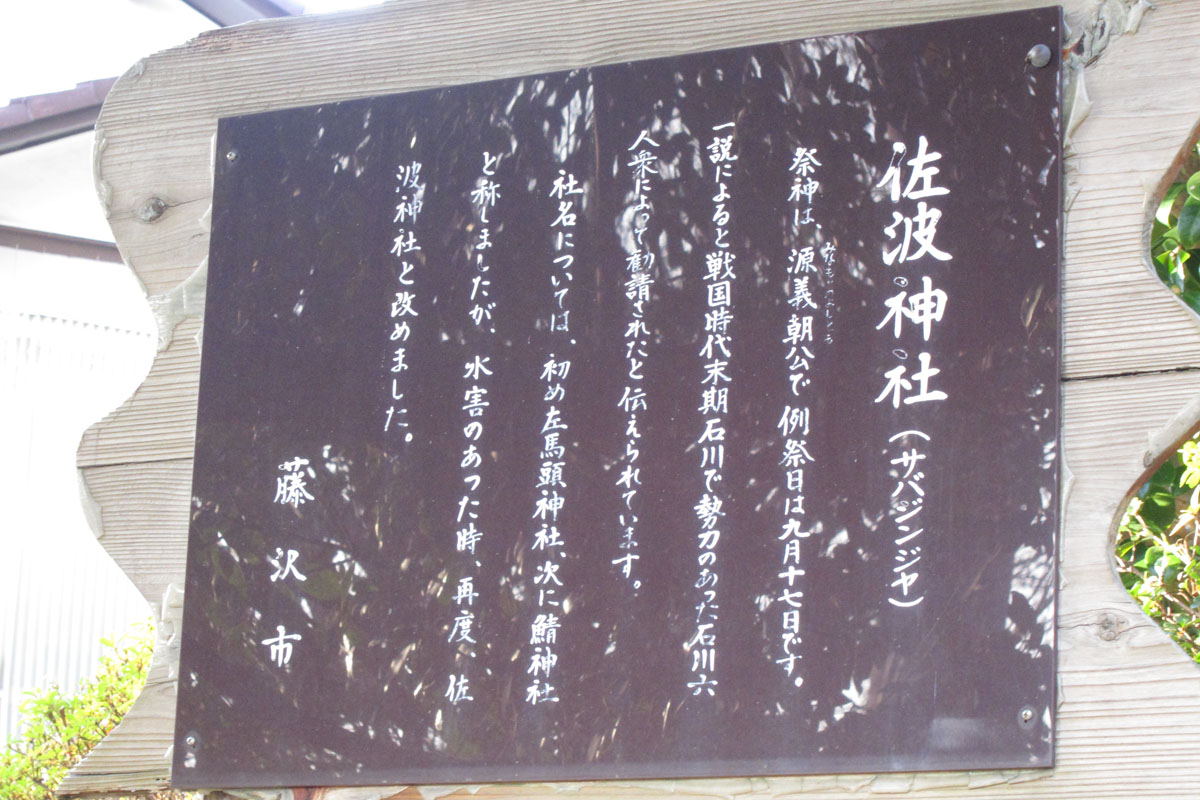 佐波神社(サバジンジヤ)
祭神は、源義朝公で例祭日は九月十七日です。
一説によると戦国時代末期石川で勢力のあった石川六
人衆によって勧請されたと伝えられています。
社名については、初め左馬頭神社、次に鯖神社
と称しましたが、水害のあった時、再度、佐
波神社と改めました。
藤沢市